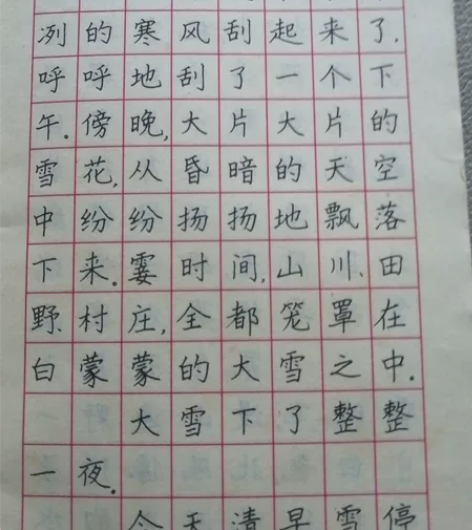 冽的寒风刮起来了.
呼呼地刮了一个下
午.傍晚,大片大片的
雪花,从昏暗的天空
中纷纷扬扬地飘落
下来.霎时间,山川、田
野、村庄,全都笼罩在
白蒙蒙的大雪之中.
大雪下了整整
一夜.
今天清早雪停